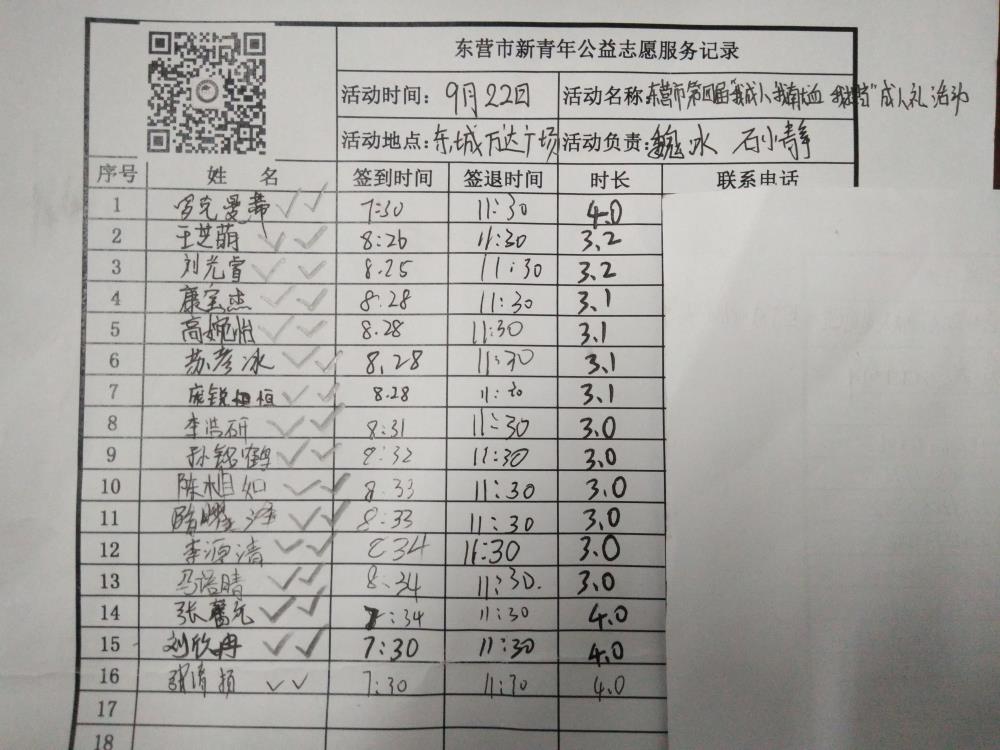 东营市新青年公益志愿服务记录
活动时间: 9月22日 活动名称: 东营市第四届"我成人 我献血 我" 成人礼活动
活动地点: 东城万达广场 活动负责: 魏冰 石小静
序号 姓名 签到时间 签退时间 时长 联系电话
1 罗克曼蒂 7:30 11:30 4.0
2 王芝萌 8:26 11:30 3.2
3 刘光睿 8.25 11:30 3.2
4 康宝杰 8.28 11:30 3.1
5 高婉怡 8.28 11:30 3.1
6 苏彦冰 8,28 11:30 3.1
7 庞锐恒 8.28 11:30 3.1
8 李浩研 8:31 11:30 3.0
9 孙铭鹤 8:32 11:30 3.0
10 陈相如 8.33 11:30 3.0
11 8:33 11:30 3.0
12 李源清 8 34 11:30 3.0
13 马语晴 8.34 11:30. 3.0
14 张 7:34 11:30 4.0
15 刘欣冉 7:30 11:30 4.0
16 张清 7:30 11:30 4.0
17
18